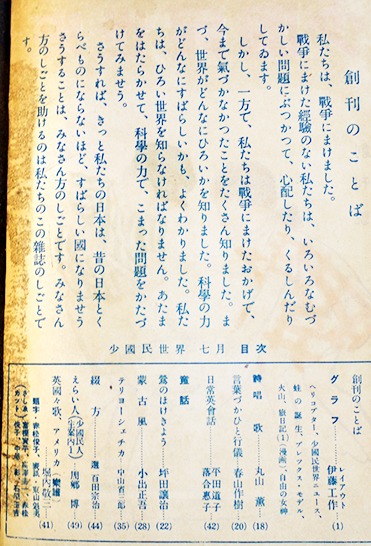 創刊のことば
私たちは、戰爭にまけました。
戰爭にまけた經驗のない私たちは、いろいろなむづ
かしい問題にぶつかつて、心配したり、くるしんだり
してゐます。
しかし、一方で、私たちは戰爭にまけたおかげで、
今まで氣づかなかつたことをたくさん知りました。ま
づ、世界がどんなにひろいかを知りました。科學の力
がどんなにすばらしいかも、よくわかりました。私た
ちは、ひろい世界を知らなければなりません。あたま
をはたらかせて、科學の力で、こまつた問題をかたづ
けてみませう。
さうすれば、きつと私たちの日本は、昔の日本とく
らべものにならないほど、すばらしい國になりませう
さうすることは、みなさん方のしごとです。みなさん
方のしごとを助けるのは私たちのこの雜誌のしごとで
す。
少國民世界 七月 目次
創刊のことば
グラフ レイアウト 伊藤工作 (1)
ヘリコプター、少國民世界ニユース、
蛙の誕生、プレックス・モデル、
火山、旅日記(1)(漫画)、自由の女神
詩 唱歌 丸山薫 (18)
言葉づかひと行儀 春山作樹 (20)
日常英會話 平田道子 落合惠子 (42)
童話
鶯のはけきよう 坪田讓治 (22)
蒙古風 小出正吾 (28)
テリヨーシエチカ 中山省三郎 (35)
綴方 選 百田宗治 (44)
えらい人 (少國民人生案内) 周郷博 (49)
英國の歌、アメリカの歌 堀内敬三 (41)